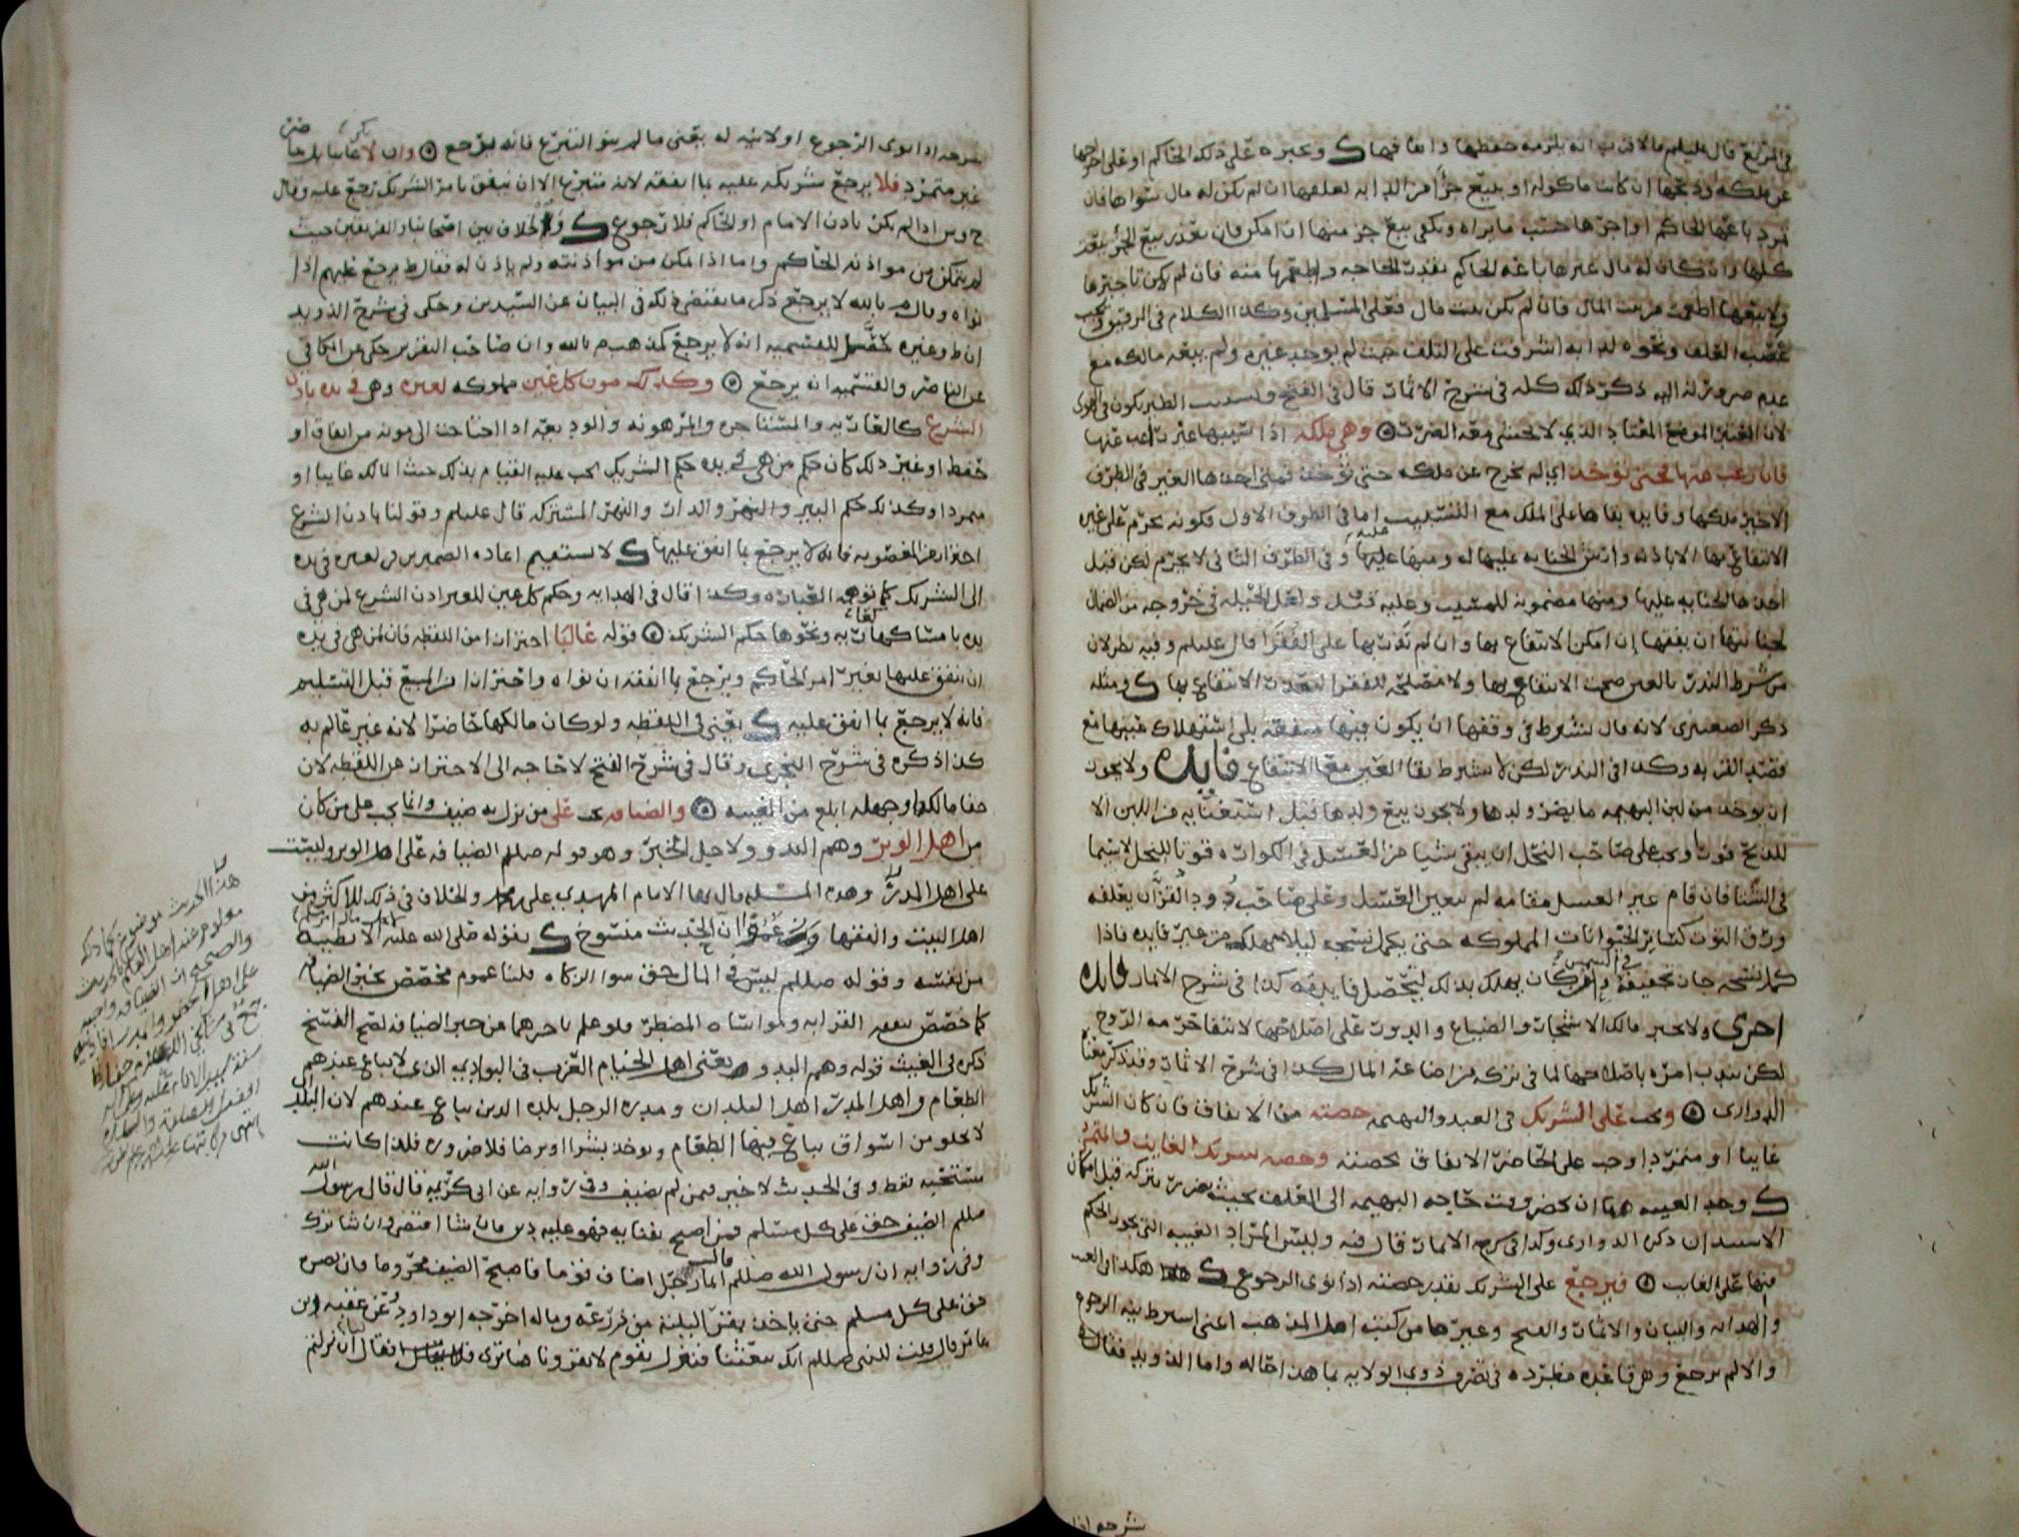 في المرتع قال عليلم والاقرب انه يلزمه حفظها وانقا فيها ك وتجبره على ذلك الحاكم او على اخراجها
عن ملكه وذبحها ان كانت ماكوله او ببيع جزأ من الدابه لعلفها ان لم يكن له مال سواها فان
تمرد باعها الحاكم او اجرها حسب ما يراه ويكفي بيع جزء منها ان امكن فان تعذر بيع الجزء بيعت
كلها وان كان له مال غيرها باعه الحاكم بقدر الحاجه واطعمها منه فان لم يكن تاجيرها
ولا بيعها اطعمت من بيت المال فان لم يكن بيت مال فعلى المسلمين وكذا الكلام في الرقيق ويجب
غصب العلف ونحوه لدابه اشرفت على التلف حيث لم يوجد غيره ولم يبعه مالكه مع
عدم ضرورته اليه ذكر ذلك كله في شرح الاثمار قال في الفتح وتسييب الطير يكون في الهوى
لانه الموضع المعتاد الذي لا يخشى معه الضرر وهي ملكه اذا سيبها غير راغب عنها
فان رغب عنها فحتى تؤخذ اي لم تخرج عن ملكه حتى تؤخذ فمتى اخذها الغير في الطرف
الاخير ملكها وفايدة بقاها على الملك مع التسييب اما في الطرف الاول فكونه يحرم على غيره
الانتفاع بها الا باذنه وارش الجنايه عليها له ومنها عليه وفي الطرف الثاني لا يحرم لكن قبل
اخذها الجنايه عليها ومنها مضمونه للمسيب وعليه
ان ينفقها إن امكن الانتفاع بها وان لم نذر بها على الفقرا قال عليلم وفيه نظر لان
من شرط النذر بالعين صحة الانتفاع بها ولا مصلحه للفقرا لتعذر الانتفاع بها ك ومثله
ذكر الصعيتري لانه قال يشترط في وقفها ان يكون فيها منفعه بلى استهلاك عينها مع
قصد القربه وكذا في النذر لكن لا يشترط بقا العين مع الانتفاع فايده ولا يجوز
ان يوخذ من لبن البهيمه ما يضر ولدها ولا يجوز بيع ولدها قبل استغنايه عن اللبن الا
للذبح فورا ويجب على صاحب النحل ان يبقي شيا من العسل في الكواره قوتا للنحل لا سيما
في الشتا فان قام غير العسل مقامه لم يتعين العسل وعلى صاحب دود القز ان يعلفه
ورق التوت كساير الحيوانات المملوكه حتى يكمل نسجه ليلا يهلك من غير فايده فاذا
كمل نسجه جاز تجفيفه في الشمس وان كان يهلك بذلك لتحصل فايدته كذا في شرح الاثمار فايده
اخرى ولا يجبر مالك الاشجار والضياع والدور على اصلاحها لانتفا حرمة الروح
لكن يندب امره باصلاحها لما في تركه من اضاعة المال كذا في شرح الاثمار وقد ذكر معناه
الدواري ويجب على الشريك في العبد والبهيمه حصته من الانفاق فان كان الشريك
غايبا او متمردا وجب على الحاضر الانفاق بحصته وحصه شريكه الغايب والمتمرد
ك وحد الغيبه هنا ان يحضر وقت حاجة البهيمه الى العلف بحيث تضرر بتركه قبل امكان
الاستيذان ذكره الدواري وكذا في شرح الاثمار قال فيه وليس المراد الغيبه التي يجوز الحكم
فيها على الغايب فيرجع على الشريك بقدر حصته اذا نوى الرجوع ك هكذا في الغيث
والهدايه والبيان والاثمار والفتح وغيرها من كتب اهل المذهب اعني اشترط نية الرجوع
والا لم يرجع وهي قاعده مطرده في تصرف ذوي الولايه بما هذا حاله واما الذويد فقال في
شرحه اذا
شرحه اذا نوى الرجوع او لا نيه له يعني ما لم ينو التبرع فانه يرجع وان لا يكن غايبا بل حاضر
غير متمرد فلا يرجع شريكه عليه بما انفقه لانه متبرع الا ان ينفق بامر الشريك رجع عليه وقال
ح وش اذا لم يكن باذن الامام او الحاكم فلا رجوع ك والخلاف بين اصحابنا والفريقين حيث
لم يتمكن من مواذنة الحاكم واما اذا تمكن من مواذنته ولم ياذن له فقال ط يرجع عليهم اذا
نواه وقال م بالله لا يرجع ذكر ما يقتضي ذلك في البيان عن السيدين وحكى في شرح الذويد
ان ط وغيره للقسميه انه لا يرجع كمذهب م بالله وان صاحب التقرير حكى عن الكافي
عن الناصر والقسميه انه يرجع وكذلك مون كل عين مملوكه لغيره وهي في يده باذن
الشرع كالعاريه والمستاجره والمرهونه والوديعه اذا احتاجت الى مونه من انفاق او
حفظ او غير ذلك كان حكم من هي في يده حكم الشريك يجب عليه القيام بذلك حيث المالك غايبا او
متمردا وكذلك حكم البير والنهر والدار والنهر المشتركه قال عليلم وقولنا باذن الشرع
احتراز من المغصوبه فانه لا يرجع بما انفق عليها ك لا يستقيم اعادة الضميرين في لغيره في يده
الى الشريك كما توهمه العباره وكذا قال في الهدايه وحكم كل عين للغير اذن الشرع لمن هي في
يده بامساكها كعاريه ونحوها حكم الشريك قوله غالبا احتراز من اللقطه فان لمن هي في يده
ان ينفق عليها بغير امر الحاكم ويرجع بما انفقه ان نواه واحتراز من المبيع قبل التسليم
فانه لا يرجع بما انفق عليه ك يعني في اللقطه ولو كان مالكها حاضرا لانه غير عالم به
كذا ذكره في شرح النجري وقال في شرح الفتح لا حاجه الى الاحتراز من اللقطه لان
خفا مالكها وجهله ابلغ من الغيبه والضيافه تجب على من نزل به ضيف وانما تجب على من كان
من اهل الوبر وهم البدو ولاجل الخبر وهو قوله صللم الضيافه على اهل الوبر وليست
على اهل المدر وهذه المسئله قال بها الامام المهدي علي بن محمد والخلاف في ذلك للاكثر من
اهل البيت والفقها ان الحديث منسوخ ك بقوله صلى الله عليه الا بطيبه
من نفسه وقوله صللم ليس في المال حق سوا الزكاه قلنا عموم مخصص بخبر الضيافه
كما خصص بنفقة القرابه ومواساة المضطر فلو علم تاخرهما عن خبر الضيافه لصح النسخ
ذكره في الغيث قوله وهم البدو يعني اهل الخيام العرب في البوادي الذي لا يباع عندهم
الطعام واهل المدر اهل البلدان ومدرة الرجل بلده الذين يباع عندهم لان البلد
لا يخلو من اسواق يباع فيها الطعام ويوخذ بشرا او برضا فلا ضروره فلذا كانت
مستحبه فقط وفي الحديث لا خير فيمن لم يضيف وفي روايه عن ابي كريمه قال قال رسول الله
صللم الضيف حق على كل مسلم فمن اصبح بفنايه فهو عليه دين فان شا اقتضى وان شا ترك
وفي روايه ان رسول الله صللم قال ايما رجل اضاف قوما فاصبح الضيف محروما فان نصره
حق على كل مسلم حتى ياخذ بقرى ليلته من زرعه وماله اخرجه ابو داود وعن عقبه بن
عامر قال قلت للنبي صللم انك تبعثنا فننزل بقوم لا يقرونا فما ترى فقال ان نزلتم
هذا الحديث موضوع كما ذكره